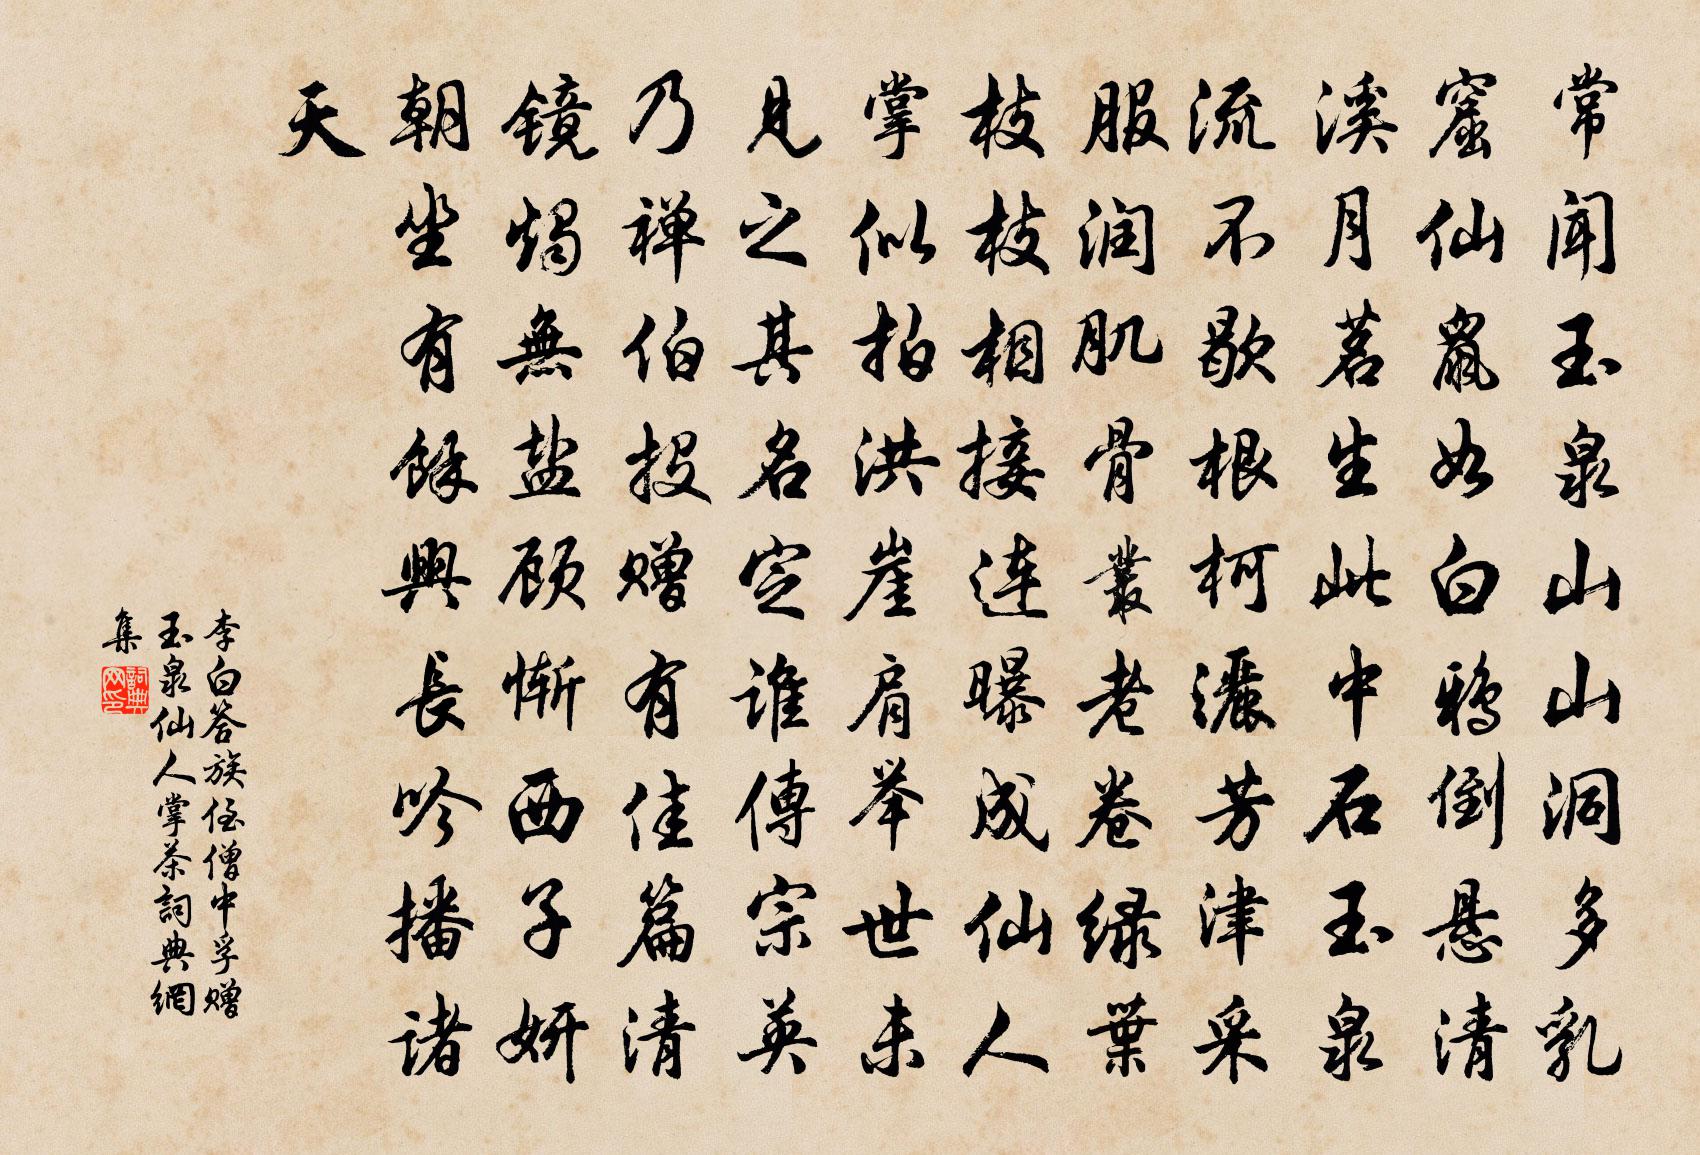 常闻玉泉山山洞多乳
窟仙鼠如白鸦倒悬清
溪月茗生此中石玉泉
流不歇根柯灑芳津采
服润肌骨叢老卷绿葉
枝枝相接连曝成仙人
掌似拍洪崖肩举世未
見之其名定谁傳宗英
乃禅伯投赠有佳篇清
镜烛無盐顾惭西子妍
朝坐有餘興長吟播诸
天
李白答族侄僧中孚赠
玉泉仙人掌茶詞典網
集
詞典
网印